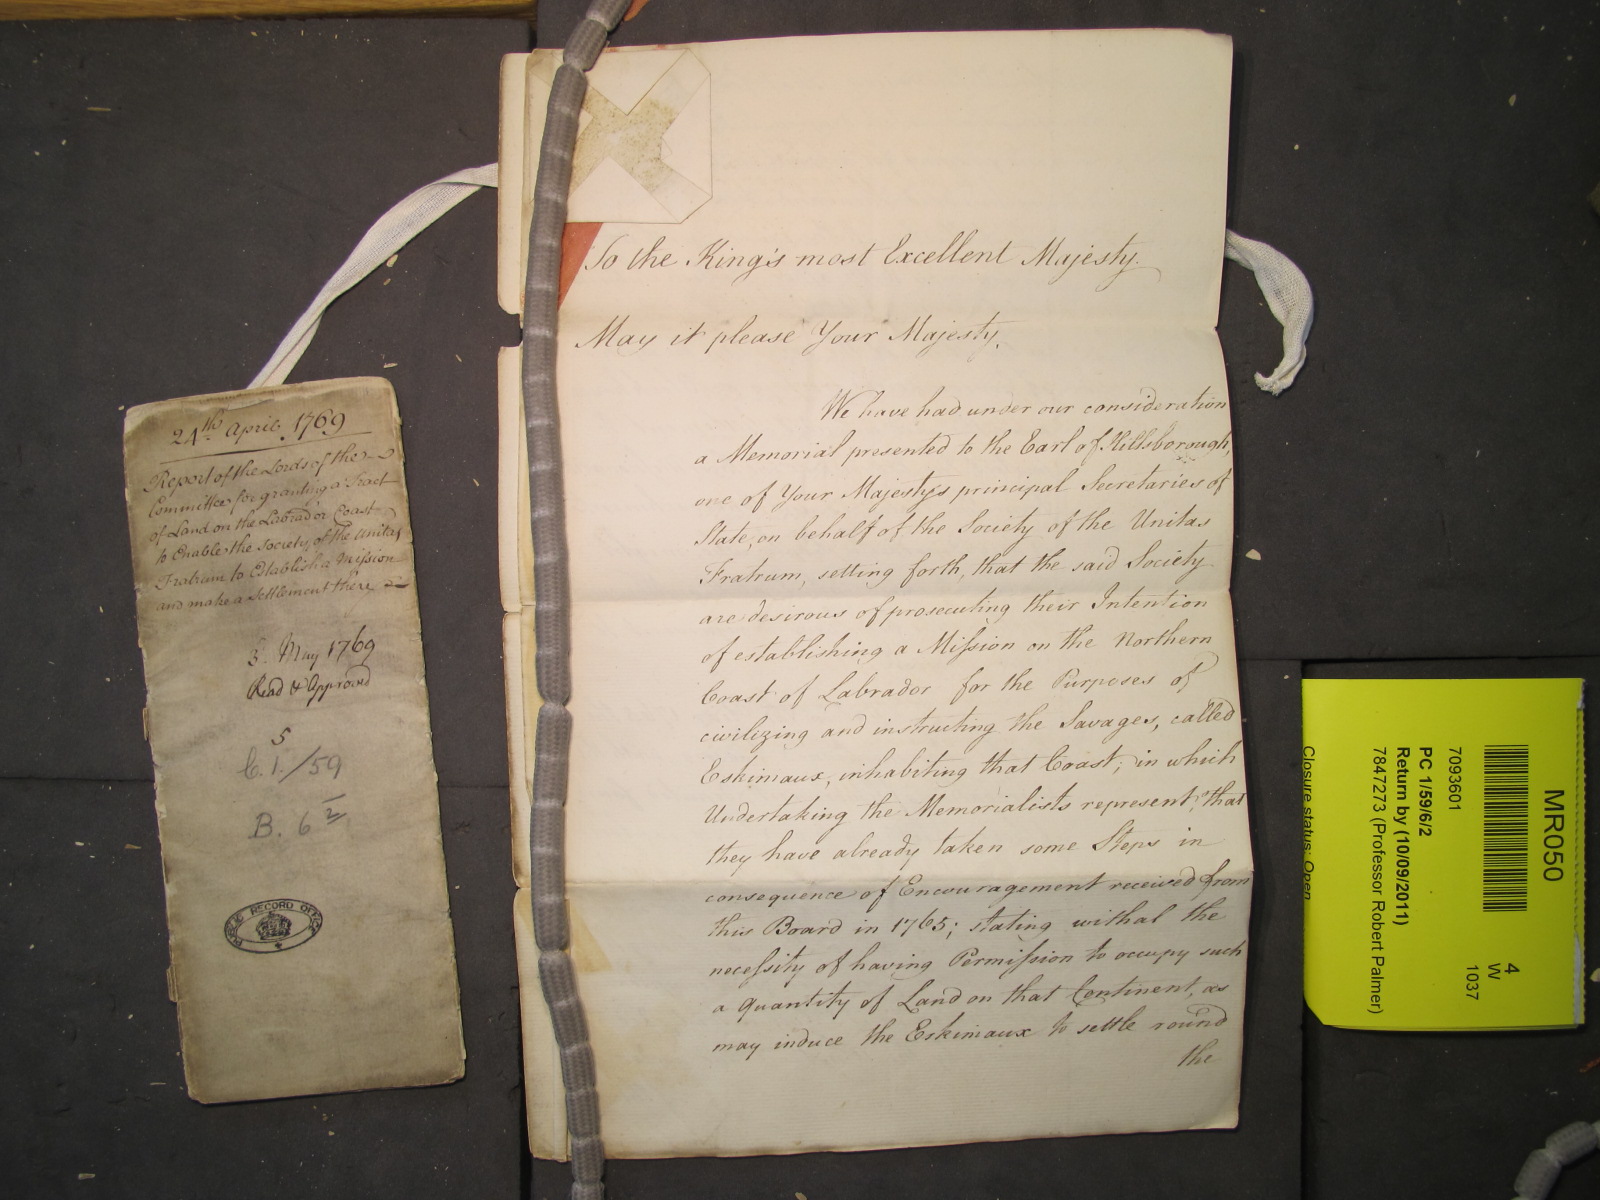 24th April 1769
Report of the Lords of the
Committee for granting a Tract
of Land on the Labrador Coast
to Enable the Society of the Unitas
Fratrum to Establish a Mission
and make a Settlement there
3. May 1769
Read & Approved
5
C. 1./59
B. 6
PUBLIC RECORD OFFICE
To the King's most Excellent Majesty.
May it please Your Majesty,
We have had under our consideration
a Memorial presented to the Earl of Hillsborough,
one of Your Majesty's principal Secretaries of
State, on behalf of the Society of the Unitas
Fratrum, setting forth, that the said Society
are desirous of prosecuting their Intention
of establishing a Mission on the Northern
Coast of Labrador for the Purposes of
civilizing and instructing the Savages, called
Eskimaux, inhabiting that Coast; in which
Undertaking the Memorialists represent, that
they have already taken some Steps in
consequence of Encouragement received from
this Board in 1765; stating withal the
necessity of having Permission to occupy such
a quantity of Land on that Continent, as
may induce the Eskimaux to settle round
the
MR050
4
W
1037
7093601
PC 1/59/6/2
Return by (10/09/2011)
7847273 (Professor Robert Palmer)
Closure status: Open